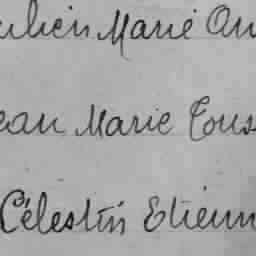 ulien Marie An
ean Marie Tous
Célestin Etienn